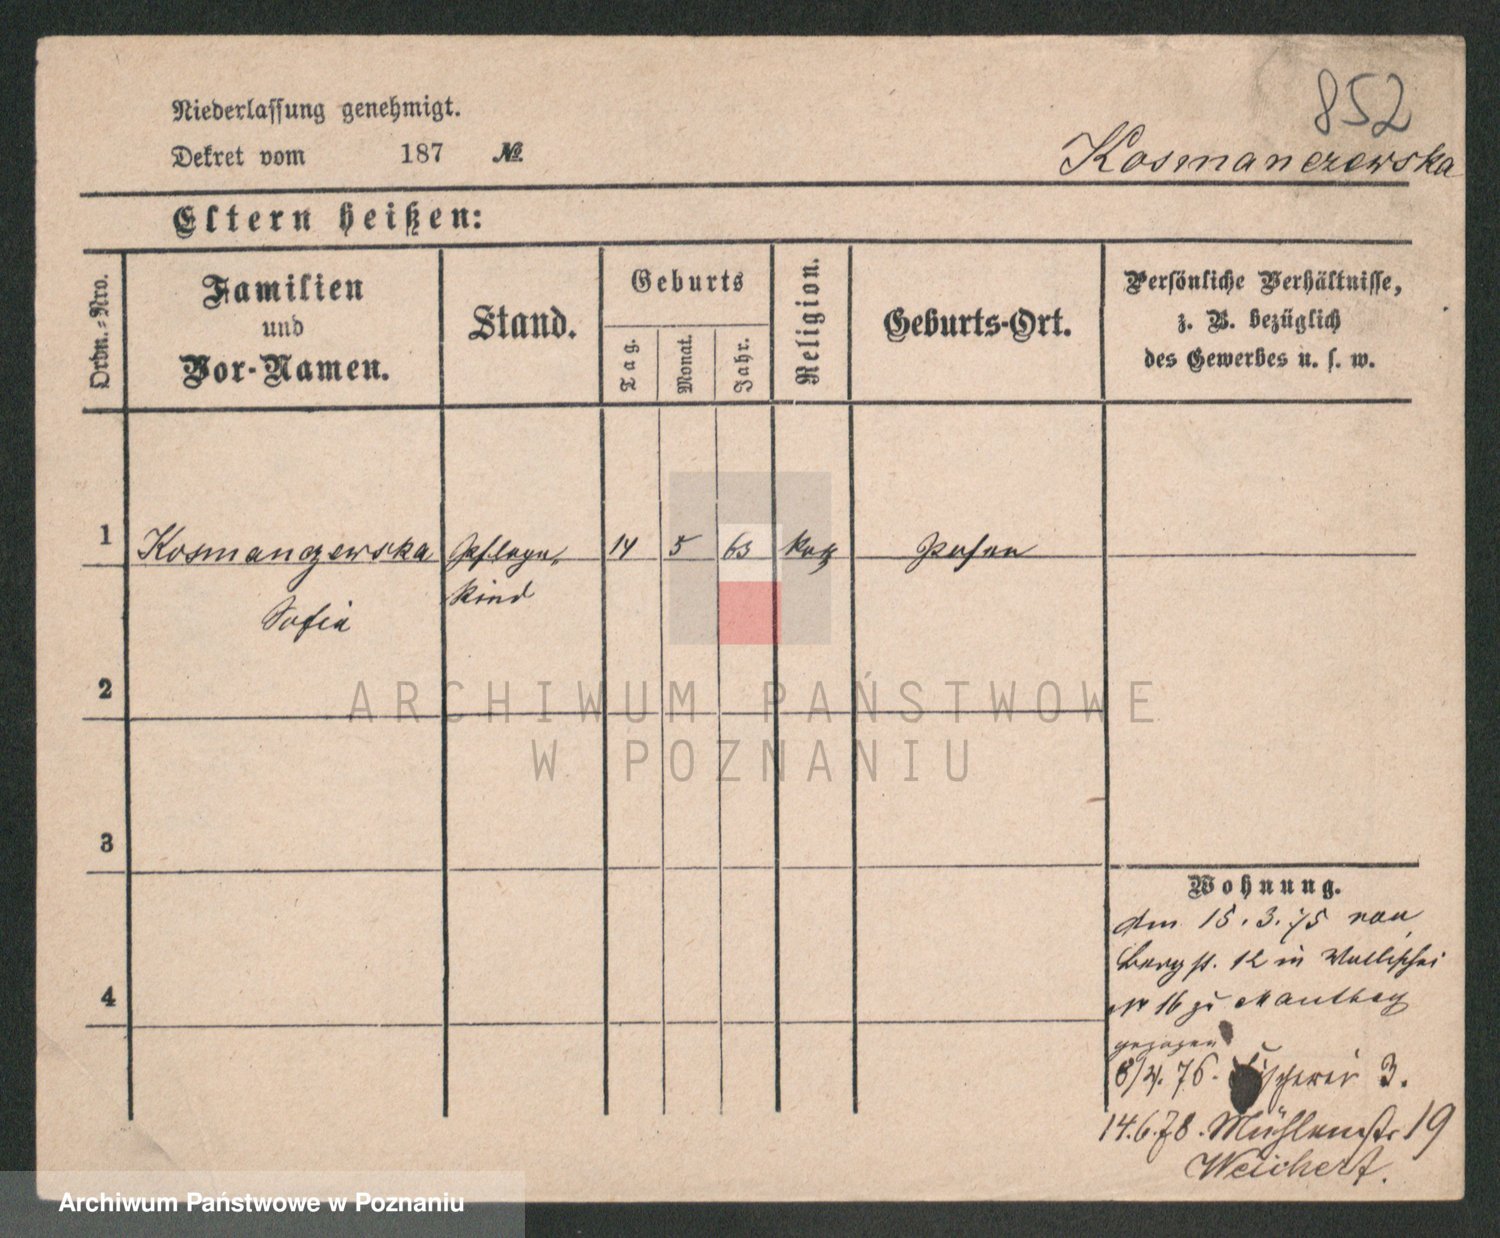 852
Niederlassung genehmigt.
Dekret vom 187 №
Kosmanczewska
Eltern heißen:
Ordn.-Nro.
Familien
und
Vor-Namen.
Stand.
Geburts
Tag.
Monat.
Jahr.
Religion.
Geburts-Ort.
Persönliche Verhältnisse,
z. B. bezüglich
des Gewerbes u. s. w.
1 Kosmanczewska Pflege- 14 5 63 kath Posen
Sofia kind
2
ARCHIWUM PAŃSTWOWE
W POZNANIU
3
4
Wohnung.
den 15.3.75 von
Bergstr. 12 in Wallischei
Nr 16 zu
gezogen
76. Fischerei 3.
14.6.78. Mühlenstr 19
Weichert.
Archiwum Państwowe w Poznaniu